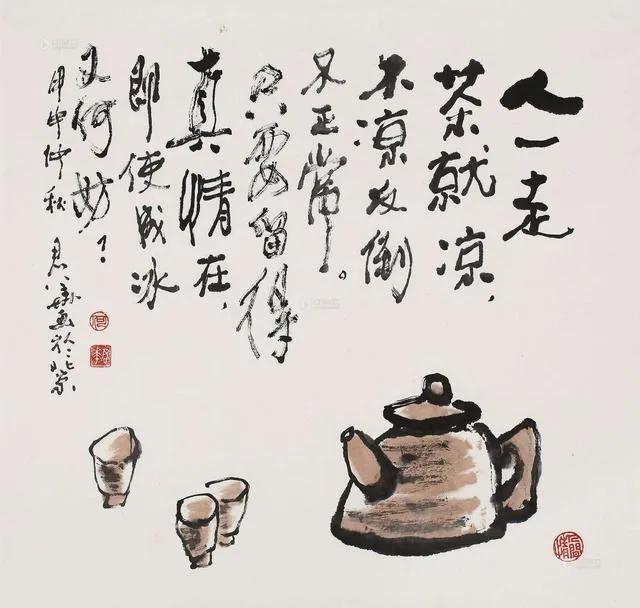 人一走
茶就凉，
不凉反倒
不正常。
只要留得
真情在，
即使成冰
又何妨？
甲申仲秋 君 画於北京